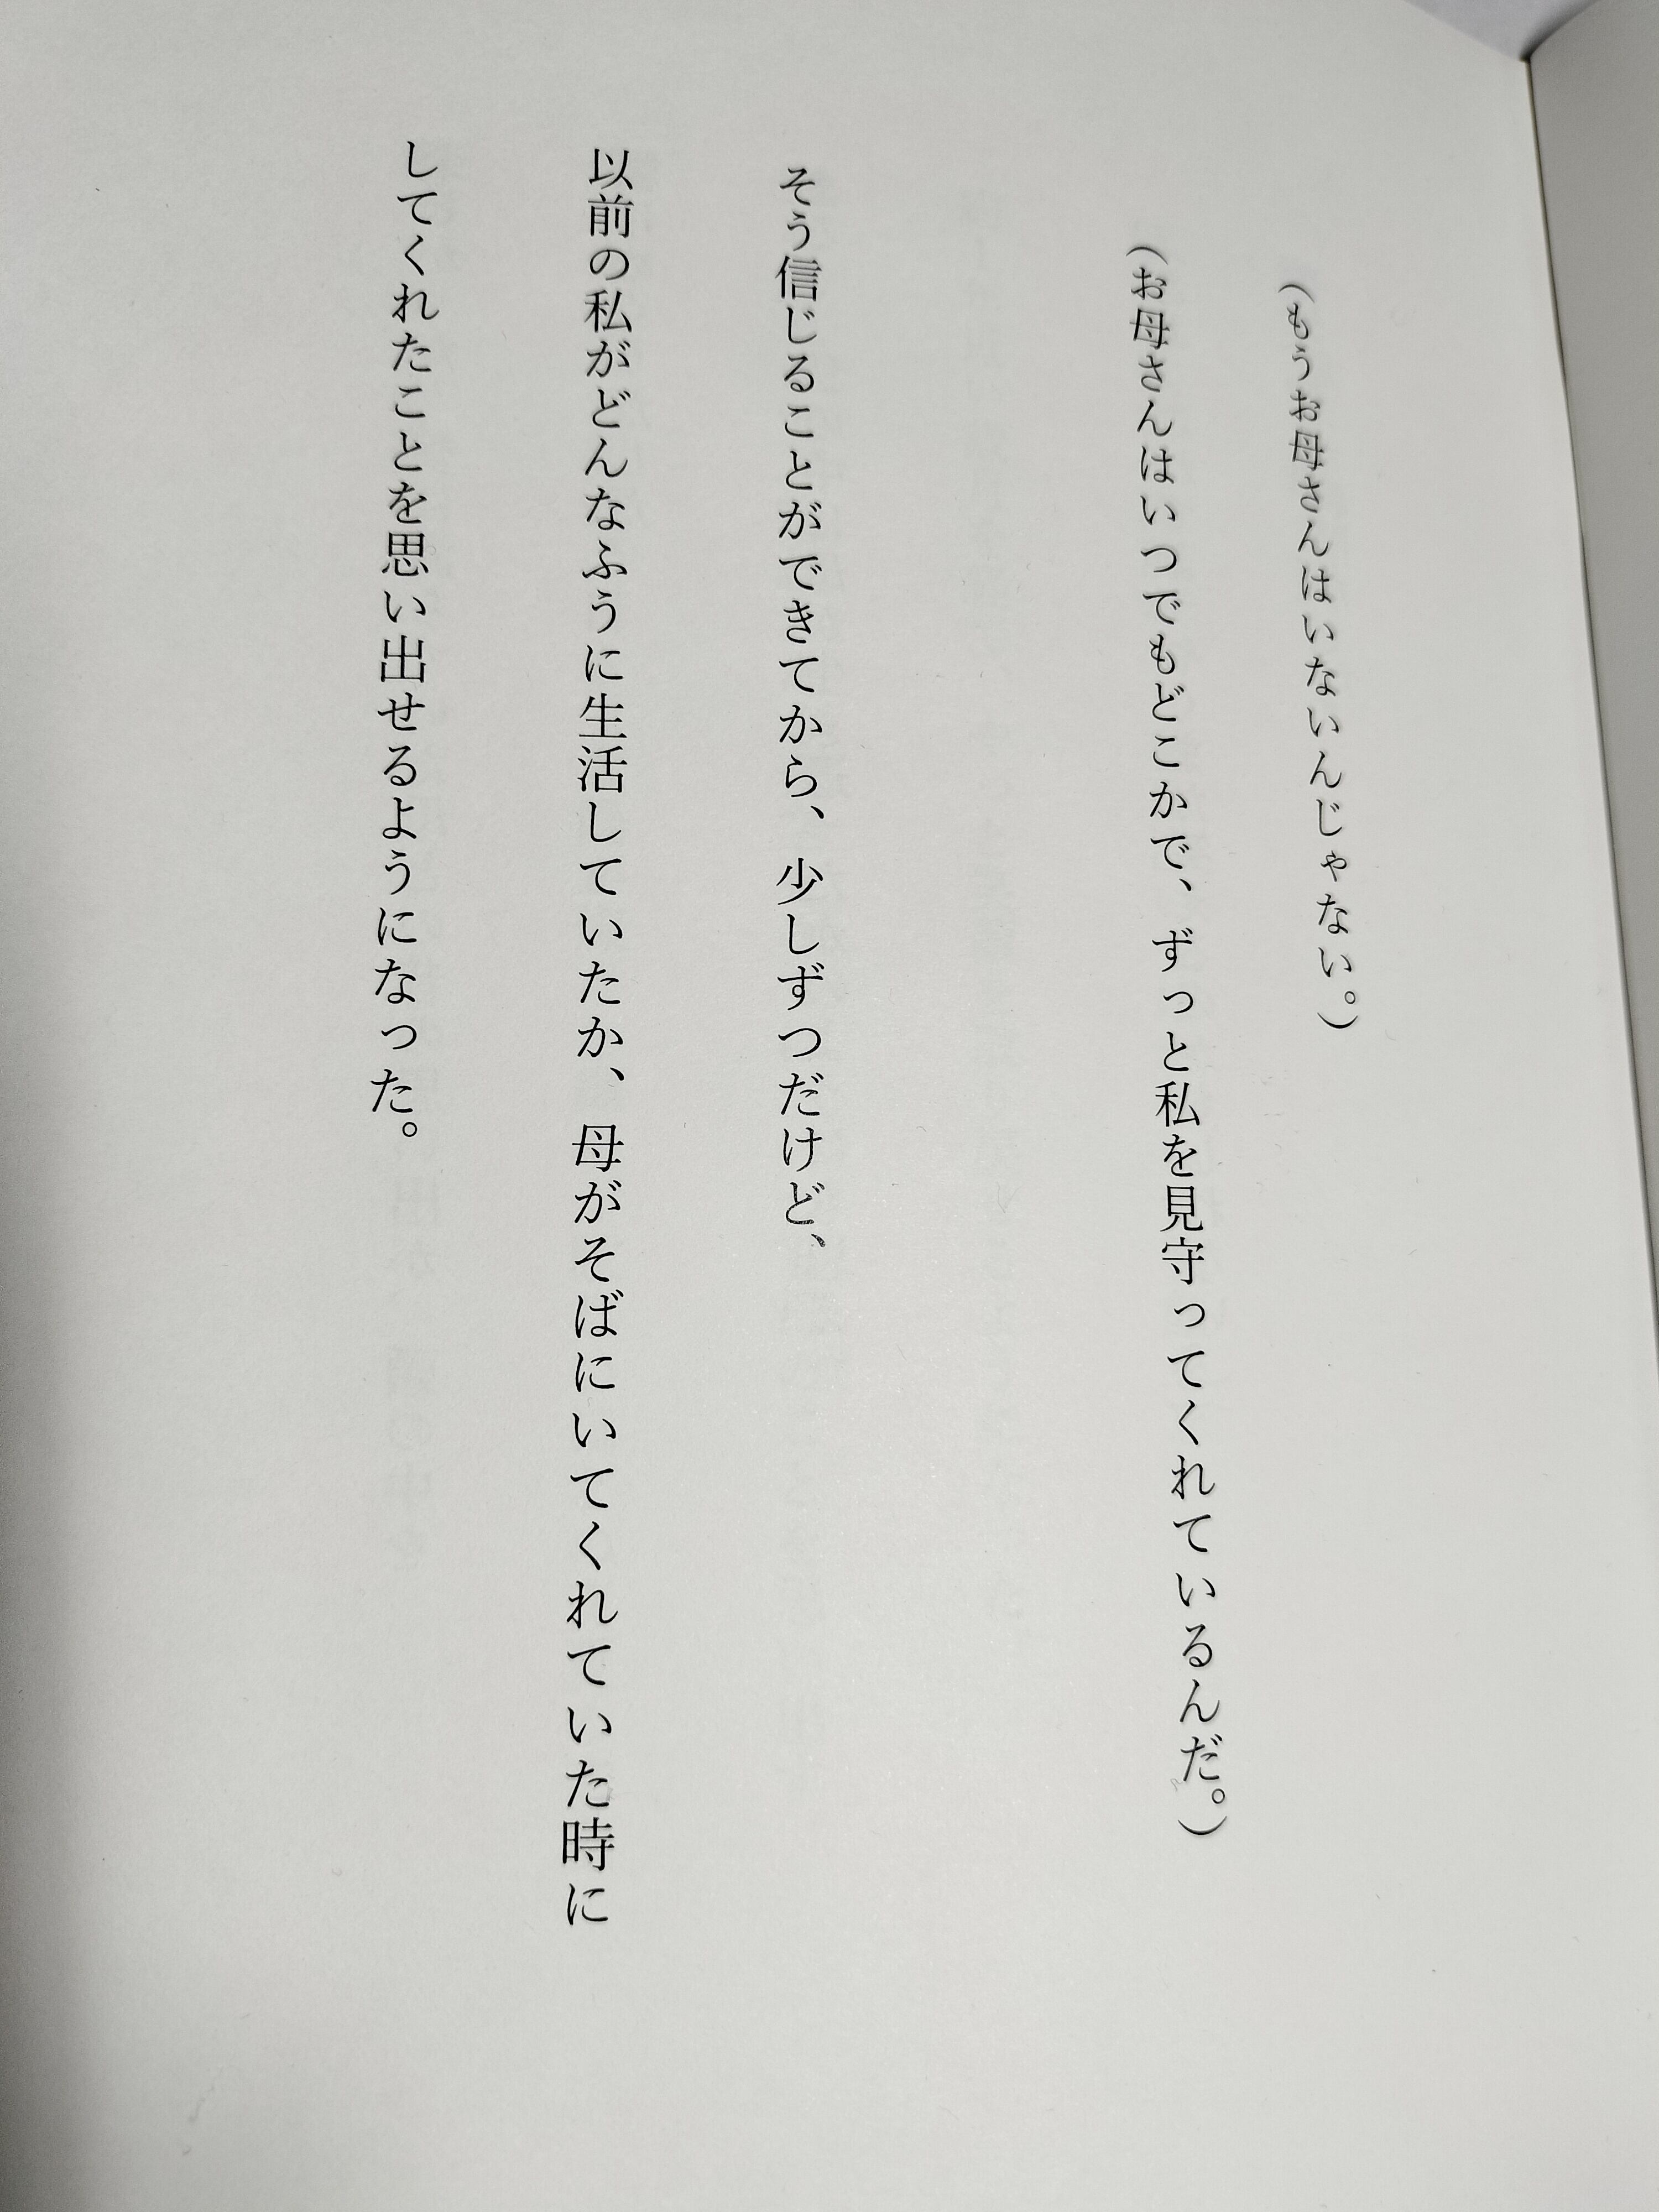 (もうお母さんはいないんじゃない。)
(お母さんはいつでもどこかで、ずっと私を見守ってくれているんだ。)
そう信じることができてから、少しずつだけど、
以前の私がどんなふうに生活していたか、母がそばにいてくれていた時に
してくれたことを思い出せるようになった。